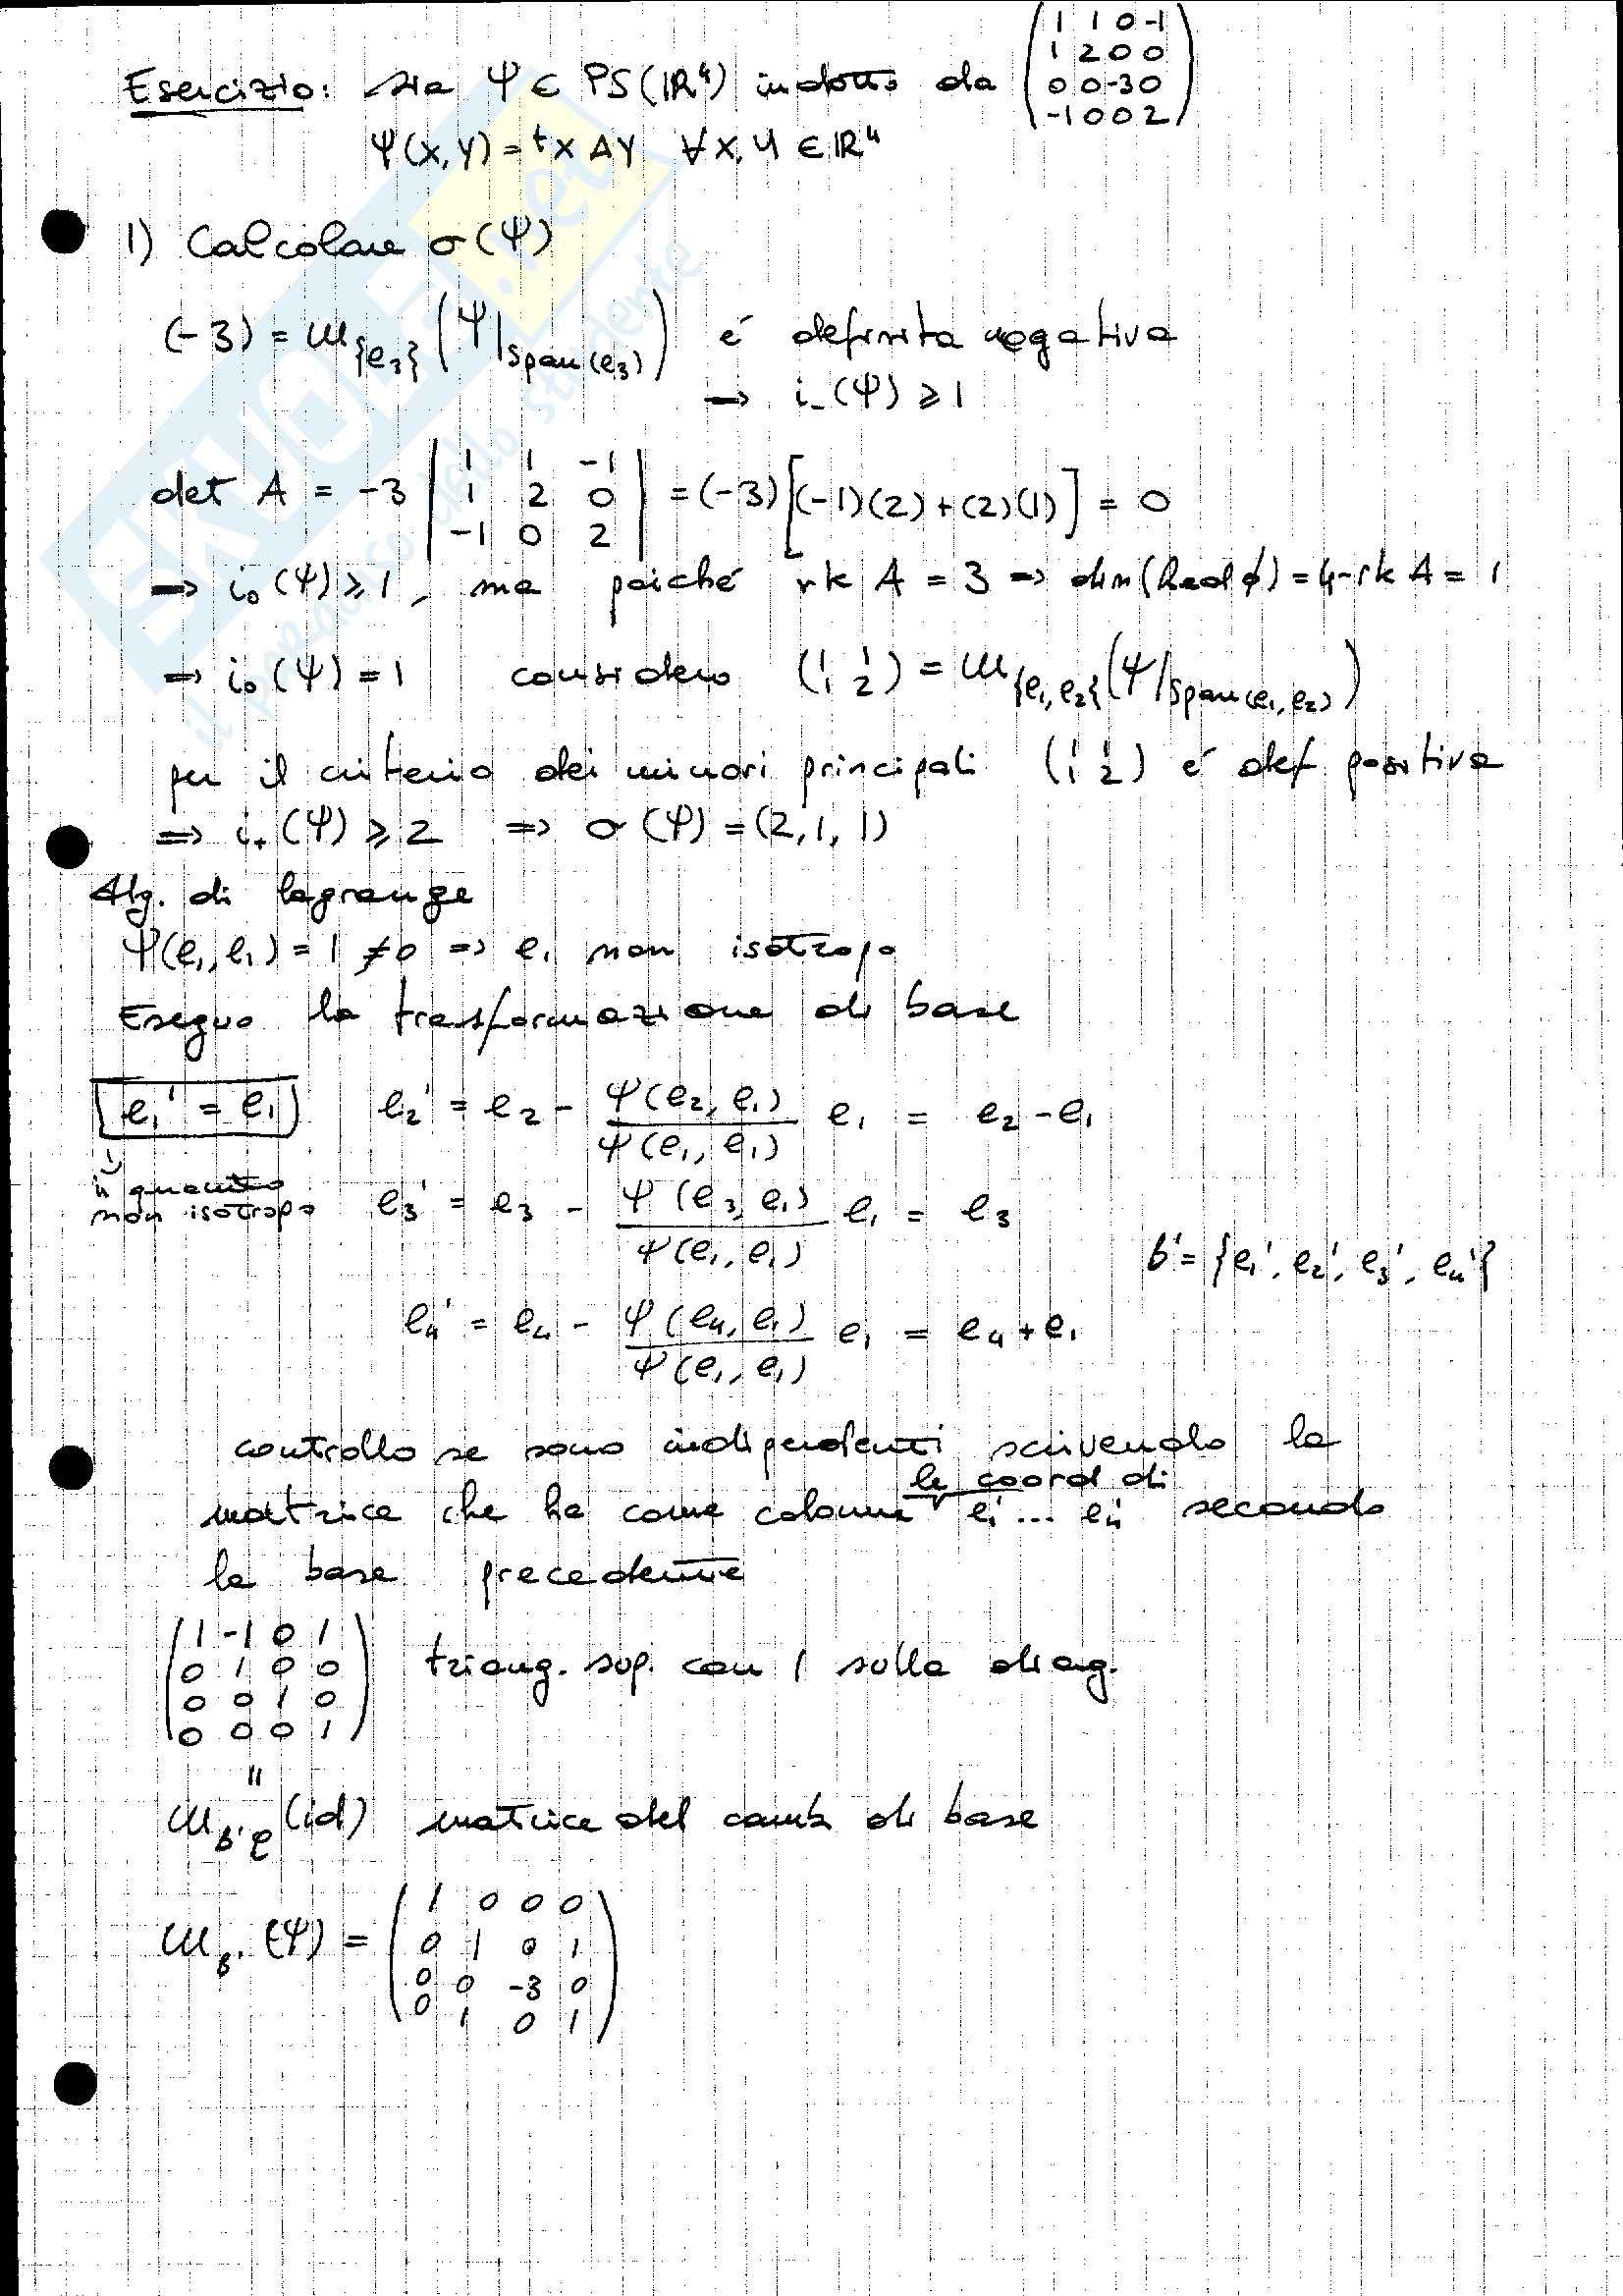 Esercizio: sia Ψ ∈ PS(ℝ⁴) indotto da
( 1 1 0 -1
1 2 0 0
0 0 -3 0
-1 0 0 2 )
Ψ(x,y) = ᵗx A y ∀ x, y ∈ ℝ⁴
1) Calcolare σ(Ψ)
(-3) = M_{e₃} (Ψ|span(e₃)) é definita negativa
→ i₋(Ψ) ⩾ 1
det A = -3 | 1 1 -1
1 2 0
-1 0 2 | = (-3)[(-1)(2)+(2)(1)] = 0
⇒ i₀(Ψ) ⩾ 1, ma poiché rk A = 3 ⇒ dim(Rad ϕ) = 4-rk A = 1
⇒ i₀(Ψ) = 1 considero (1 1 / 1 2) = M_{e₁,e₂}(Ψ|span(e₁,e₂))
per il criterio dei minori principali (1 1 / 1 2) é def. positiva
⇒ i₊(Ψ) ⩾ 2 ⇒ σ(Ψ) = (2,1,1)
Alg. di lagrange
Ψ(e₁,e₁) = 1 ≠ 0 ⇒ e₁ non isotropo
Eseguo la trasformazione di base
e₁' = e₁ e₂' = e₂ - Ψ(e₂,e₁)/Ψ(e₁,e₁) e₁ = e₂ - e₁
in quanto
non isotropo e₃' = e₃ - Ψ(e₃,e₁)/Ψ(e₁,e₁) e₁ = e₃
b' = {e₁', e₂', e₃', e₄'}
e₄' = e₄ - Ψ(e₄,e₁)/Ψ(e₁,e₁) e₁ = e₄ + e₁
controllo se sono indipendenti scrivendo la
matrice che ha come colonne le coord di e₁' ... e₄' secondo
la base precedente
( 1 -1 0 1
0 1 0 0
0 0 1 0
0 0 0 1 ) triang. sup. con 1 sulla diag.
=
M_{b',e}(id) matrice del camb di base
M_{b'}(Ψ) = ( 1 0 0 0
0 1 0 1
0 0 -3 0
0 1 0 1 )